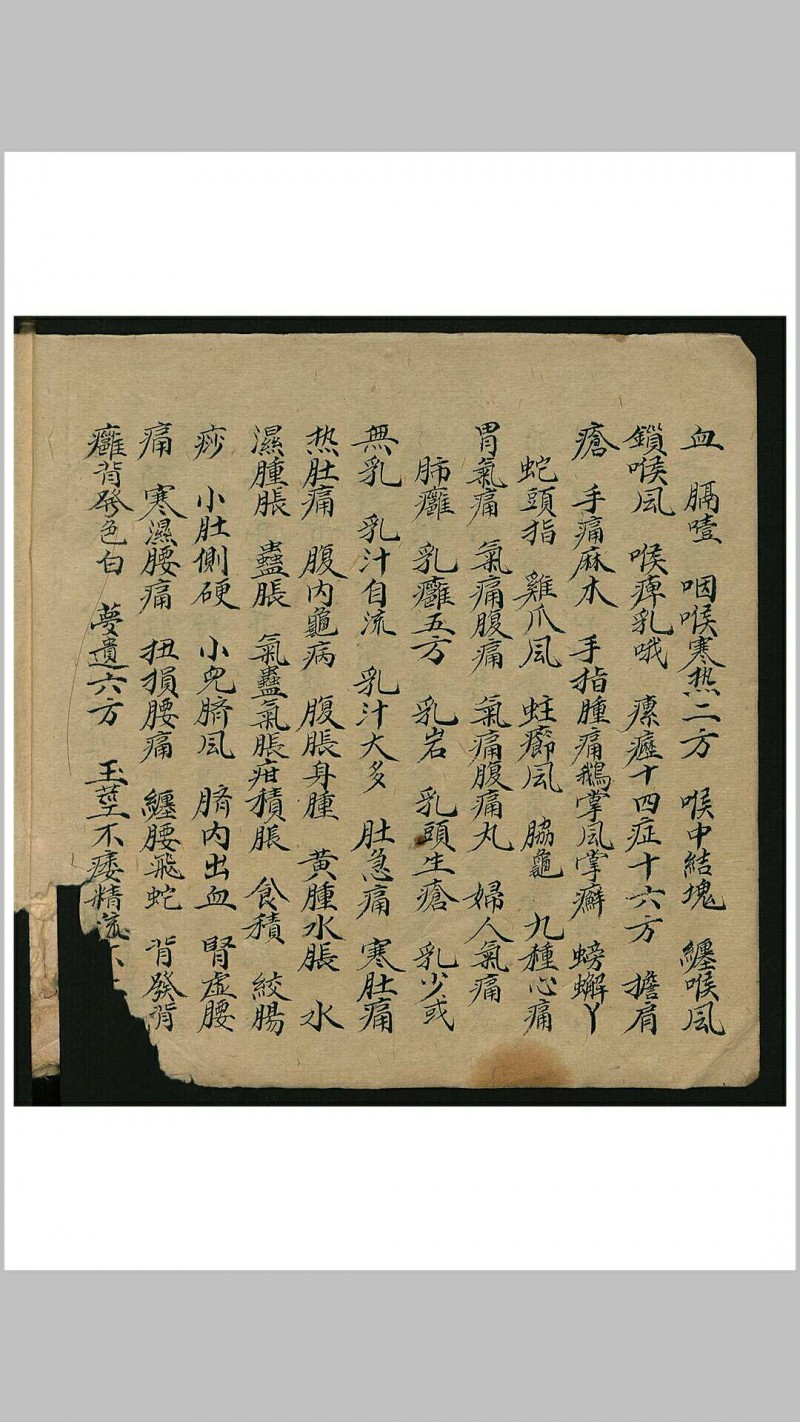 血　膈噎　咽喉寒热二方　喉中結塊　纏喉風
鎖喉風　喉痺乳哦　瘰癧十四症十六方　擔肩
瘡　手痛麻木　手指腫痛鵝掌風掌癬　螃蠏丫
蛇頭指　雞爪風　蛀癤風　脇龜　九種心痛
胃氣痛　氣痛腹痛　氣痛腹痛丸　婦人氣痛
肺癰　乳癰五方　乳岩　乳頭生瘡　乳少或
無乳　乳汁自流　乳汁大多　肚急痛　寒肚痛
热肚痛　腹内龜病　腹脹身腫　黃腫水脹　水
濕腫脹　蠱脹　氣蠱氣脹疳積脹　食積　絞腸
痧　小肚側硬　小兒臍風　臍内出血　腎虛腰
痛　寒濕腰痛　扭損腰痛　纏腰飛蛇　背發背
癰背發色白　夢遺六方　玉莖不痿精流